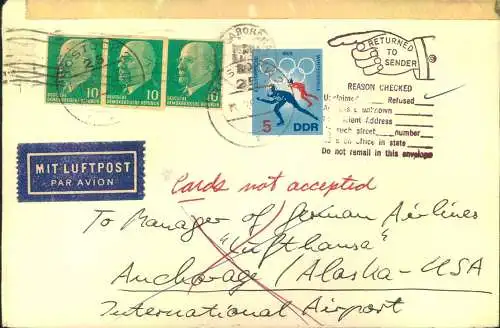 RETURNED
TO
SENDER
REASON CHECKED
Unclaimed Refused
unknown
Address
such street number
office in state
Do not remail in this envelope
10 10 10
DEUTSCHE
DEMOKRATISCHE REPUBLIK
DEUTSCHE
DEMOKRATISCHE REPUBLIK
5 DDR
MIT LUFTPOST
PAR AVION
Cards not accepted
To Manager of German Airlines
"Lufthansa"
Anchorage / Alaska - USA
International Airport